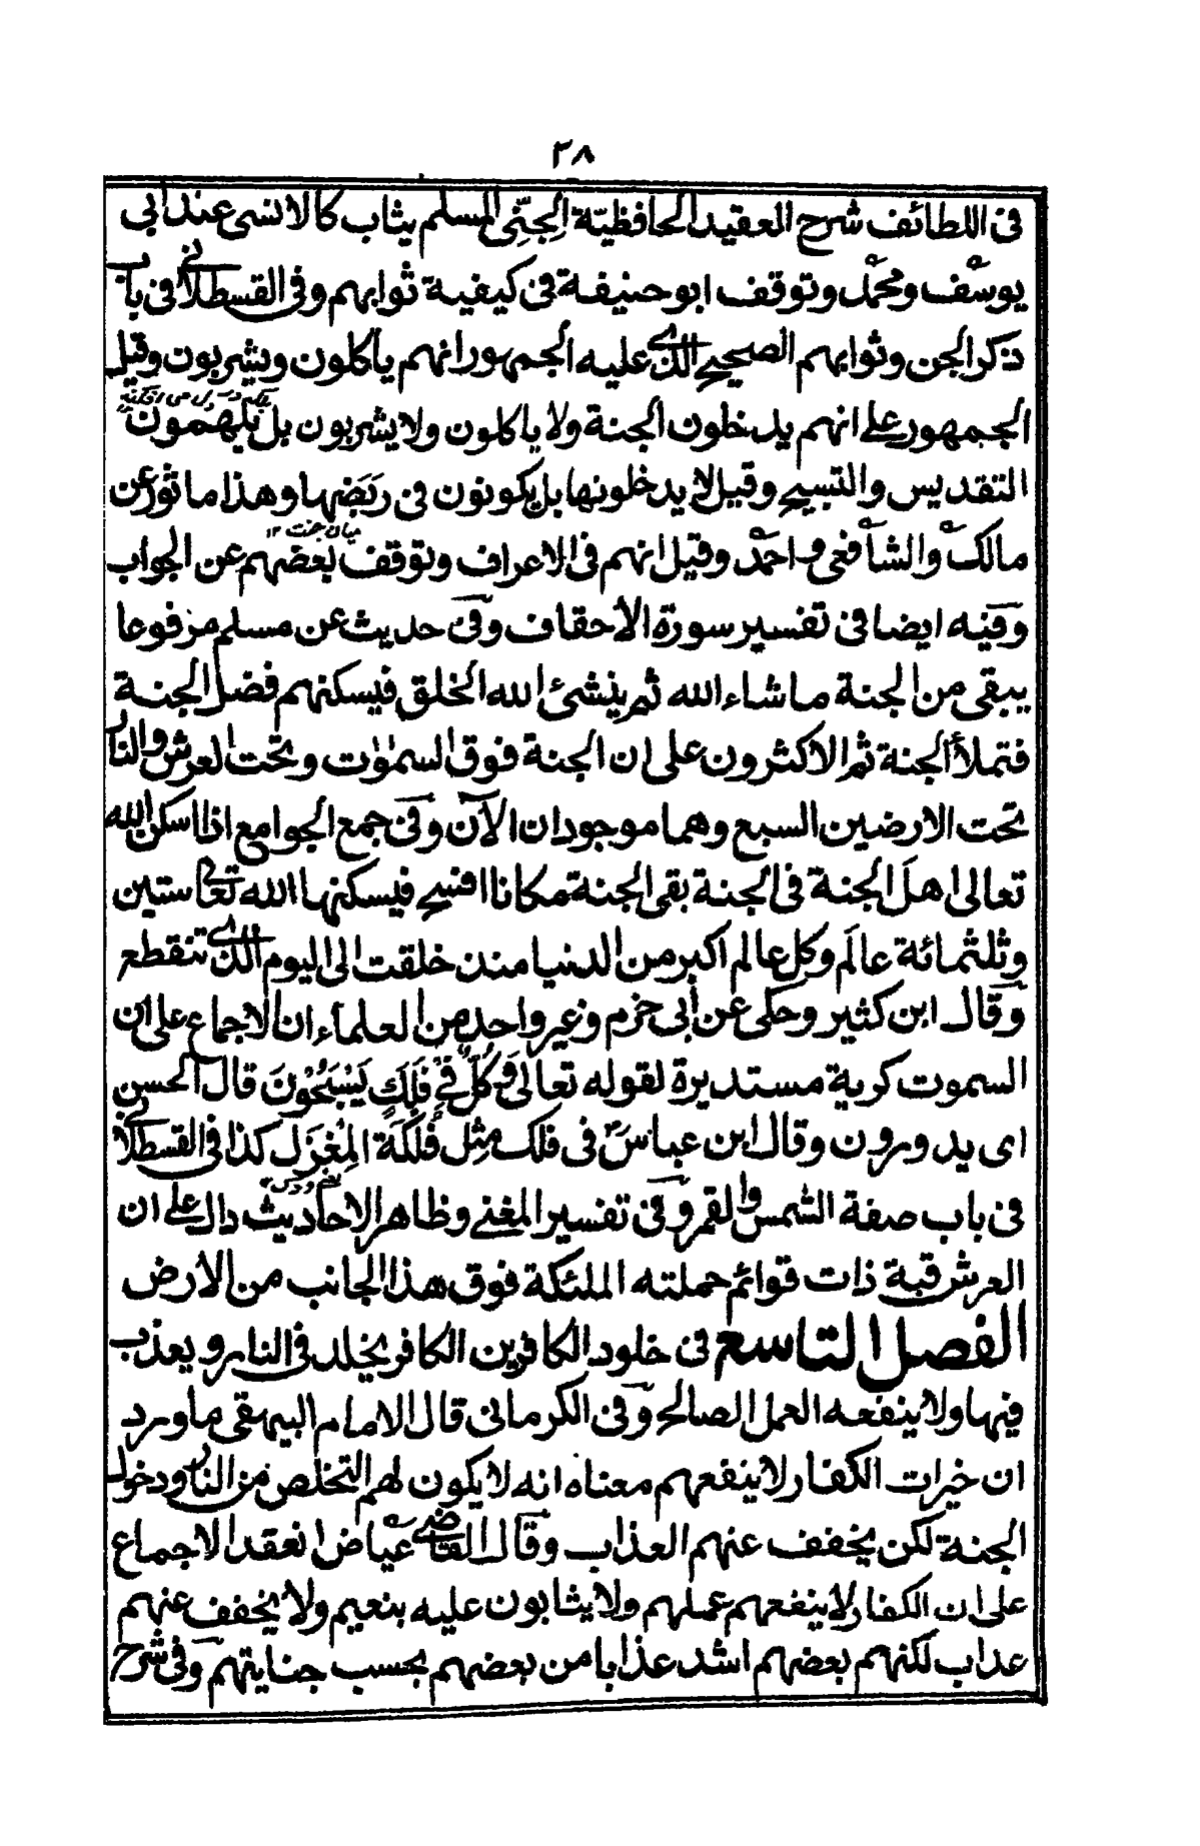 ٣٨
فى اللطائف شرح العقيد الحافظيّة الجنّى المسلم يثاب كالانسى عند ابى
يوسف ومحمد وتوقف ابوحنيفة فى كيفية ثوابهم وفى القسطلانى فى باب
ذكر الجن وثوابهم الصحيح الذى عليه الجمهور انهم ياكلون ويشربون وقيل
الجمهور على انهم يدخلون الجنة ولا ياكلون ولا يشربون بل يلهمون
التقديس والتسبيح وقيل لا يدخلونها بل يكونون فى رَبَضِها وهذا ماثور عن
ميان جنت ١٢
مالك والشافعى واحمد وقيل انهم فى الاعراف وتوقف بعضهم عن الجواب
وفيه ايضا فى تفسير سورة الاحقاف وفى حديث عن مسلم مرفوعا
يبقى من الجنة ماشاء الله ثم ينشئ الله الخلق فيسكنهم فضل الجنة
فتملأ الجنة ثم الاكثرون على ان الجنة فوق السمٰوٰت وتحت العرش والنار
تحت الارضين السبع وهما موجودان الآن وفى جمع الجوامع اذا اسكن الله
تعالى اهلَ الجنة فى الجنة بقى الجنة مكانا افسح فيسكنها الله تعالى ستين
وثلثمائة عالَم وكل عالم اكبر من الدنيا منذ خلقت الى اليوم الذى تنقطع
وقال ابن كثير وحكى عن أبى حزم وغير واحد من العلماء ان الاجماع على ان
السموت كرية مستديرة لقوله تعالى وَ كُلٌّ فِىْ فَلَكٍ يَسْبَحُوْنَ قال الحسن
اى يدورون وقال ابن عباس فى فلك مِثل فُلْكَةِ المِغزَل كذا فى القسطلانى
فى باب صفة الشمس والقمر وفى تفسير المغنى وظاهر الاحاديث دال على ان
العرش قبة ذات قوائم حملته الملئكة فوق هذا الجانب من الارض
الفصل التاسع فى خلود الكافرين الكافر يخلد فى النار ويعذب
فيها ولا ينفعه العمل الصالح وفى الكرمانى قال الامام البيهقى ماورد
ان خيرات الكفار لا ينفعهم معناه انه لا يكون لهم التخلص من النار ودخول
الجنة لكن يخفف عنهم العذاب وقال القاضى عياض انعقد الاجماع
على ان الكفار لا ينفعهم عملهم ولا يثابون عليه بنعيم ولا يخفف عنهم
عذاب لكنهم بعضهم اشد عذابا من بعضهم بحسب جنايتهم وفى شرح